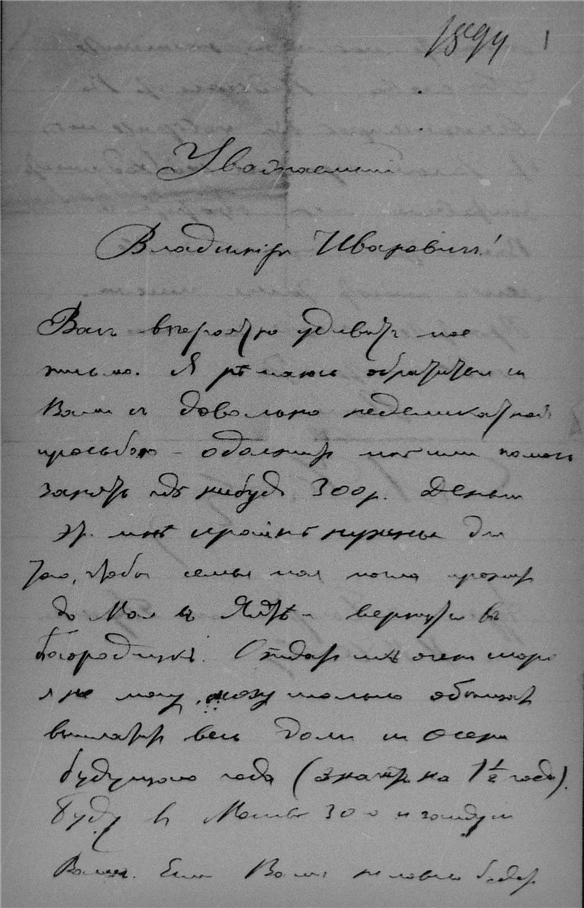 1894 1
Уважаемый
Владимiръ Ивановичъ!
Васъ вѣроятно удивитъ мое
письмо. Я рѣшаюсь обратиться къ
Вамъ съ довольно неделикатной
просьбою – одолжить мнѣ или помочь
занять гдѣ нибудь 300 р. Деньги
эти мнѣ крайне нужны для
того, чтобы семья моя могла прожить
до Мая въ Ялтѣ и вернуться въ
Богородицкъ. Отдать ихъ очень скоро
я не могу, могу только обѣщать
выплатить весь долгъ къ Осени
будущаго года (значитъ на 1½ года).
Буду въ Москвѣ 30 и зайду къ
Вамъ. Если Вамъ не ловко будетъ